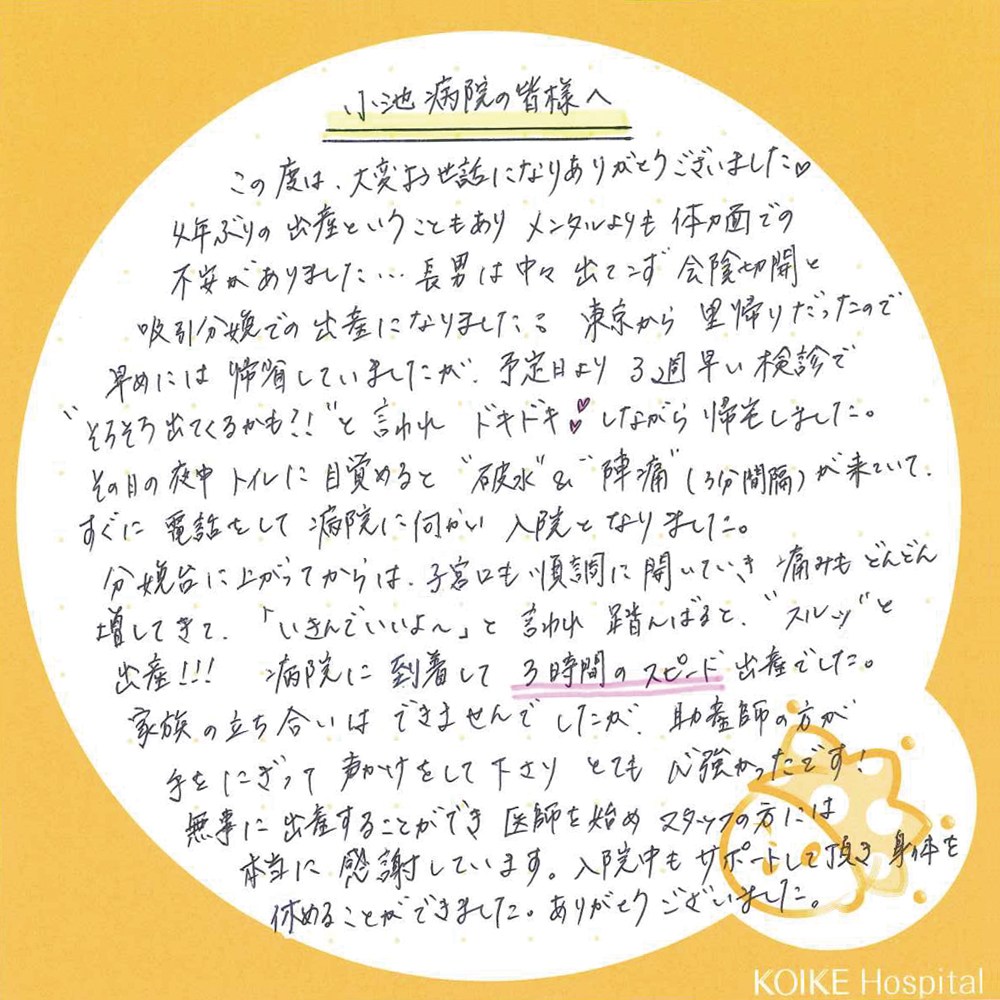 小池病院の皆様へ
この度は、大変お世話になりありがとうございました♡
4年ぶりの出産ということもあり メンタルよりも体力面での
不安がありました… 長男は中々出てこず 会陰切開と
吸引分娩での出産になりました。 東京から里帰りだったので
早めには帰省していましたが、予定日より3週早い検診で
"そろそろ出てくるかも?!"と言われ ドキドキしながら帰宅しました。
その日の夜中トイレに目覚めると"破水"&"陣痛"(3分間隔)が来ていて、
すぐに電話をして病院に向かい入院となりました。
分娩台に上がってからは、子宮口も順調に開いていき 痛みもどんどん
増してきて、「いきんでいいよ〜」と言われ踏んばると、"スルッ"と
出産!!! 病院に到着して3時間のスピード出産でした。
家族の立ち合いはできませんでしたが、助産師の方が
手をにぎって声かけをして下さり とても心強かったです!
無事に出産することができ 医師を始めスタッフの方には
本当に感謝しています。入院中もサポートして頂き身体を
休めることができました。ありがとうございました。
KOIKE Hospital